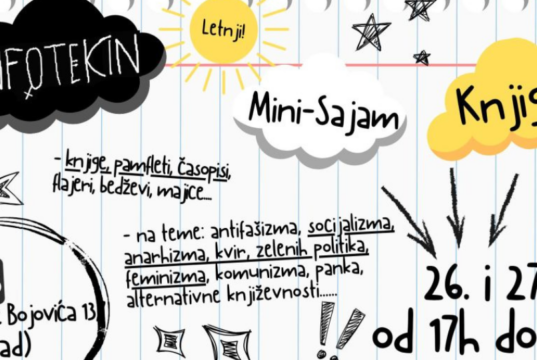 Letnji!
NFOTEKIN
Mini-Sajam
Knjig
- knjige, pamfleti, časopisi,
flajeri, bedževi, majice...
- na teme: antifašizma, socijalizma,
anarhizma, kvir, zelenih politika,
feminizma, komunizma, panka,
alternativne književnosti......
26. i 27
. Bojovića 13
od 17h do
ad)